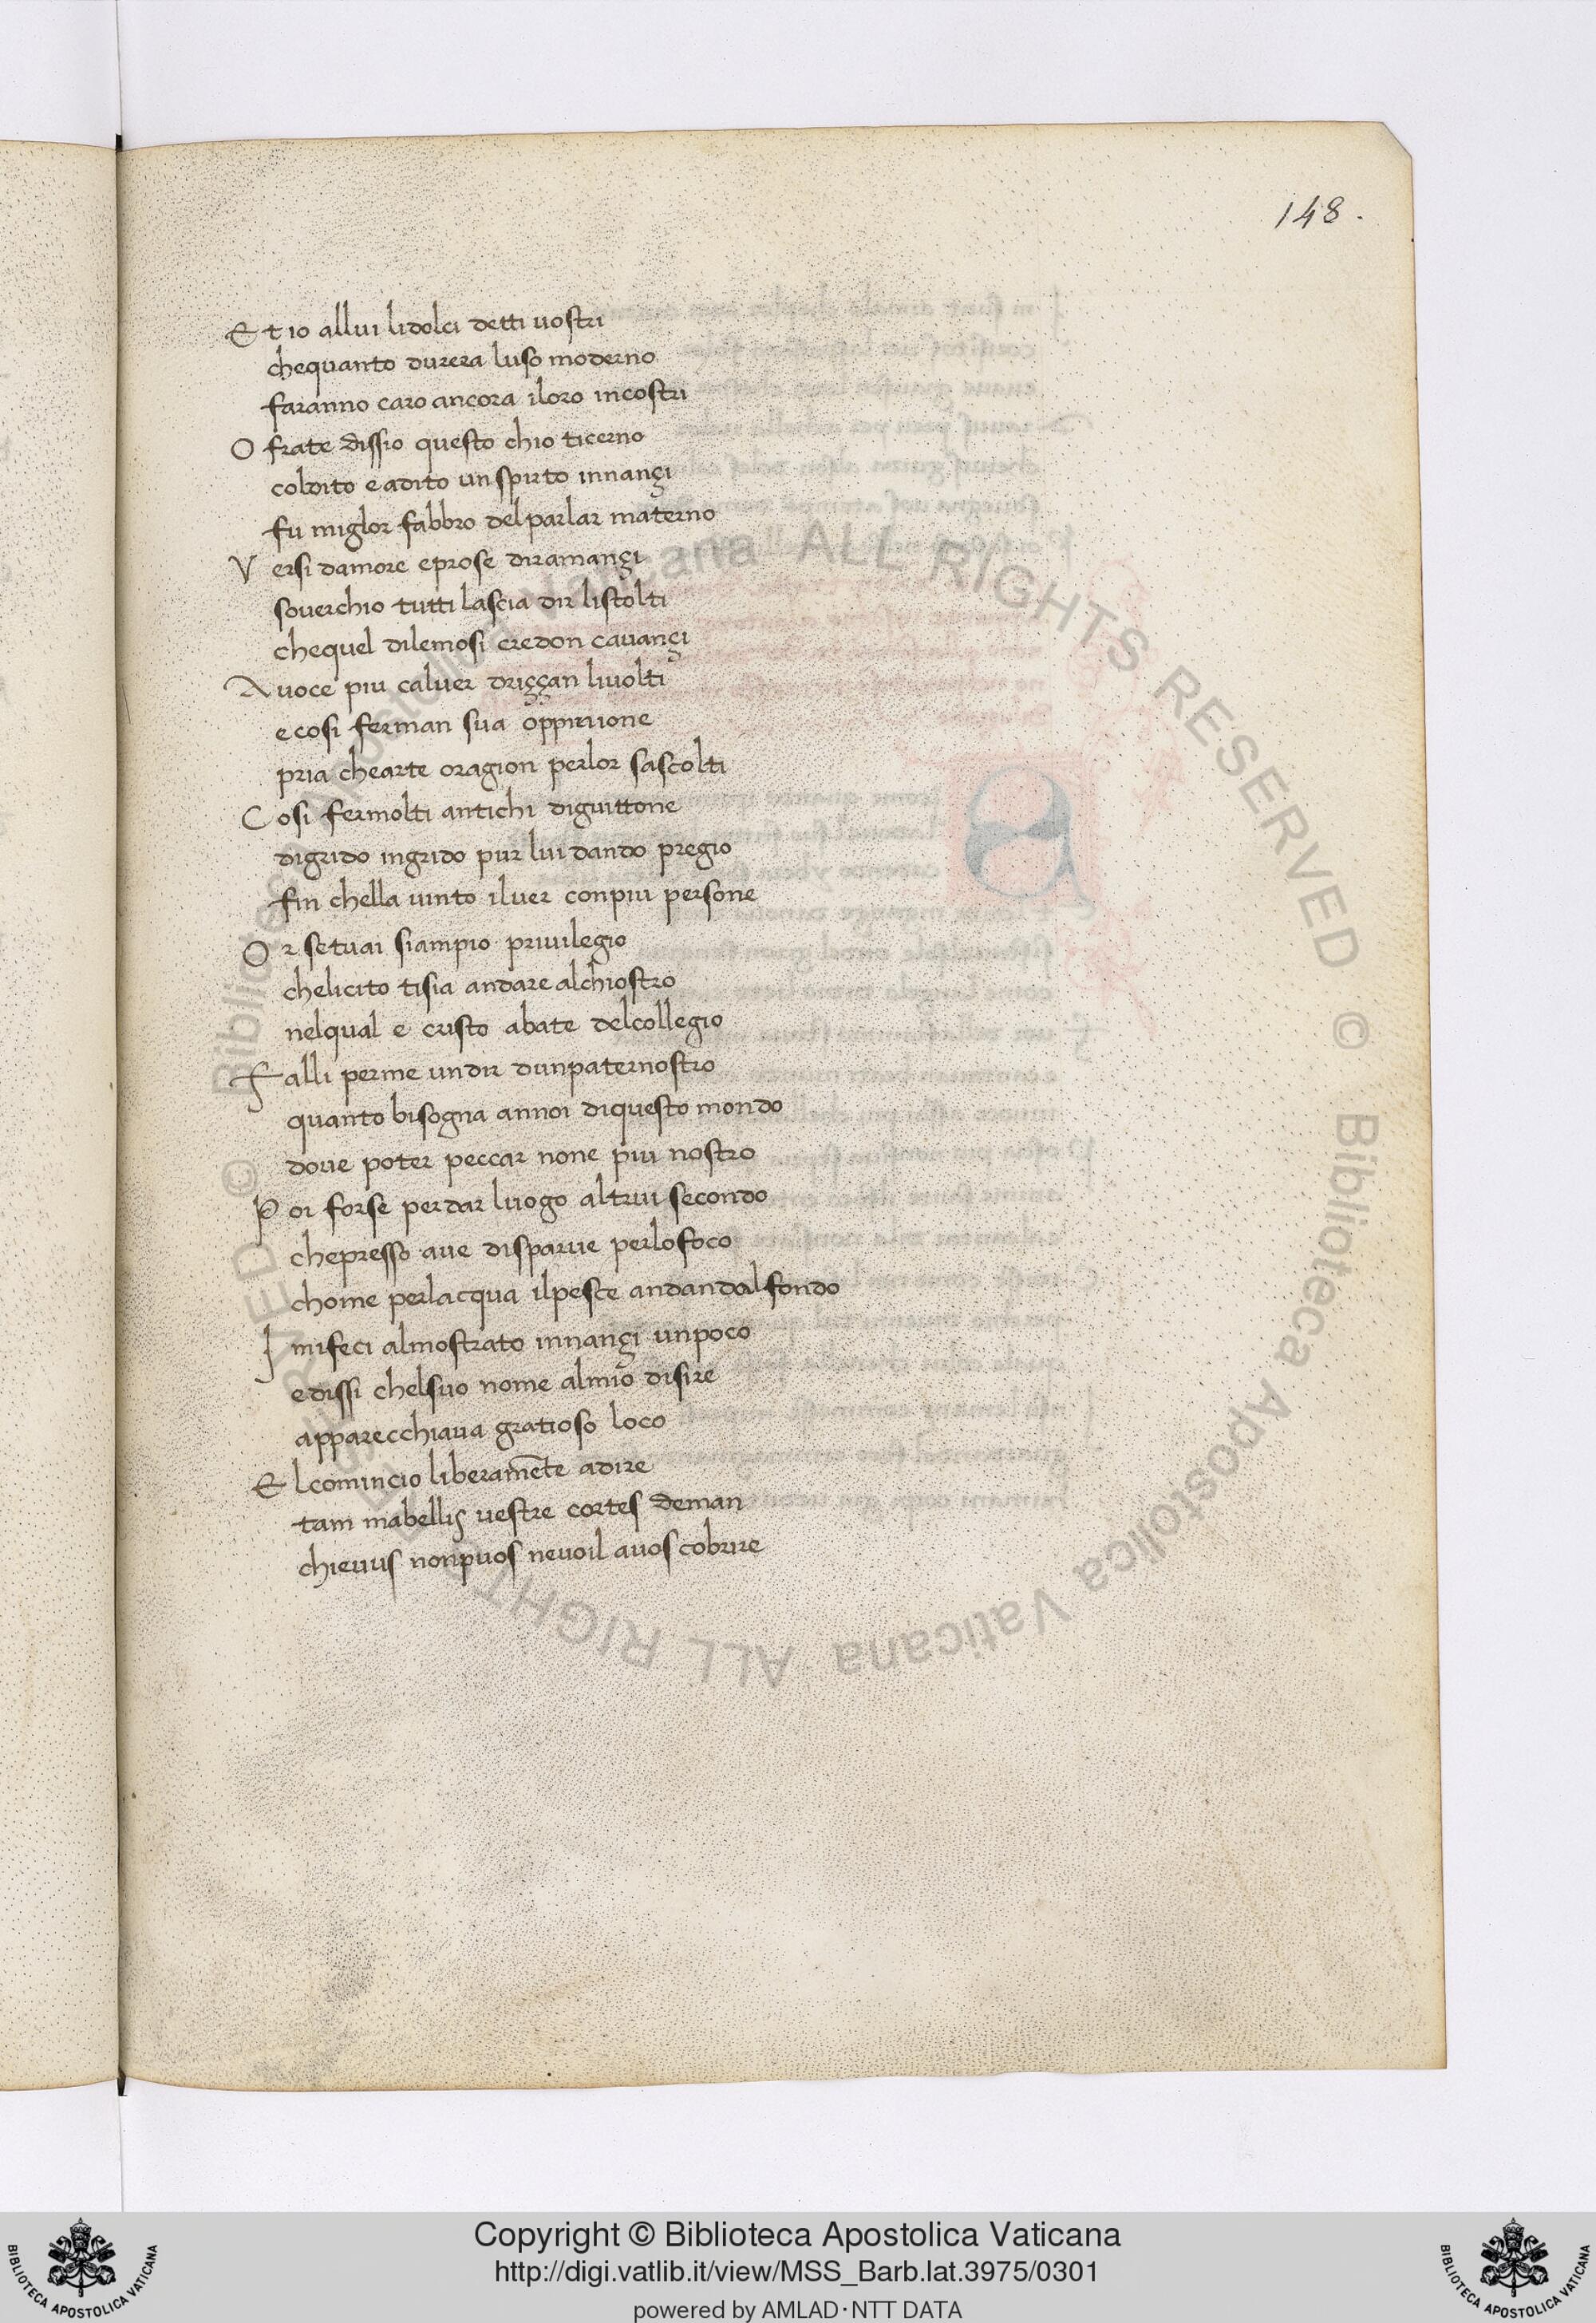 148.
Et io allui lidolci detti uostri
chequanto durera luso moderno
faranno caro ancora iloro incostri
O frate dissio questo chio ticerno
coldito e adito un spirto innançi
fu miglor fabbro delparlar materno
Versi damore eprose diramançi
souerchio tutti lascia dir listolti
chequel dilemosi credon cauançi
Auoce piu caluer driççan liuolti
e cosi ferman sua oppinione
pria chearte oragion perlor sascolti
Cosi fermolti antichi diguittone
digrido ingrido pur lui dando pregio
fin chella uinto iluer conpiu persone
Or setuai siampio priuilegio
chelicito tisia andare alchiostro
nelqual e cristo abate delcollegio
Falli perme undir dunpaternostro
quanto bisogna annoi diquesto mondo
doue poter peccar none piu nostro
Poi forse perdar luogo altrui secondo
chepresso aue disparue perlofoco
chome perlacqua ilpesce andandoalfondo
I mifeci almostrato innançi unpoco
edissi chelsuo nome almio disire
apparecchiaua gratioso loco
El comincio liberamēte adire
tam mabellis uestre cortes deman
chieuus nonpuos neuoil auos cobrire
© Biblioteca Apostolica Vaticana ALL RIGHTS RESERVED © Biblioteca Apostolica Vaticana ALL RIGHTS RESERVED
Copyright © Biblioteca Apostolica Vaticana
http://digi.vatlib.it/view/MSS_Barb.lat.3975/0301
powered by AMLAD·NTT DATA
BIBLIOTECA APOSTOLICA VATICANA
BIBLIOTECA APOSTOLICA VATICANA